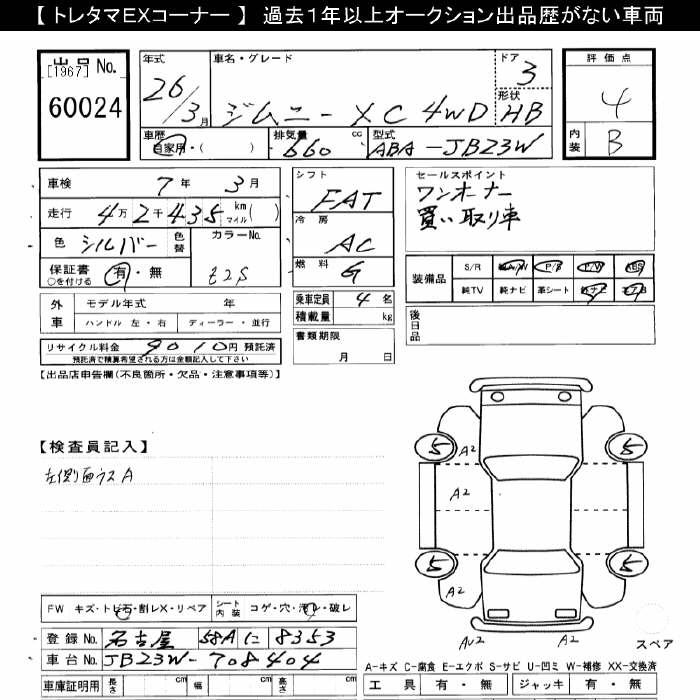 【 トレタマEXコーナー 】 過去1年以上オークション出品歴がない車両
出品 No.
[1967]
60024
年式
26/3月
車名・グレード
ジムニー XC 4WD
ドア
3
形状
HB
評価点
4
内装
B
車歴
自家用・( )
排気量 cc
660
型式
ABA-JB23W
車検 7年 3月
走行 4万2千435 km マイル ( )
色 シルバー 色替
カラーNo.
Z2S
保証書 有・無
○を付ける
外車 モデル年式 年
ハンドル 左・右 ディーラー・並行
リサイクル料金 9010円 預託済
預託済で積算希望される方は金額記入して下さい
シフト
FAT
冷房
AC
燃料
G
乗車定員 4 名
積載量 kg
書類期限
月 日
セールスポイント
ワンオーナー
買い取り車
装備品
S/R A/W P/S P/W ABS
純TV 純ナビ 革シート
後日品
【出品店申告欄(不良箇所・欠品・注意事項等)】
【検査員記入】
左側面ウスA
5 5
A2
A2
5 5
A2
AU2 A2
スペア
FW キズ・トビ石・割レX・リペア
シート内装 コゲ・穴・汚レ・破レ
登録No. 名古屋 58A に 8353
車台No. JB23W-708404
車庫証明用 長さ cm 幅 cm 高さ cm
A-キズ C-腐食 E-エクボ S-サビ U-凹ミ W-補修 XX-交換済
工具 有・無 ジャッキ 有・無